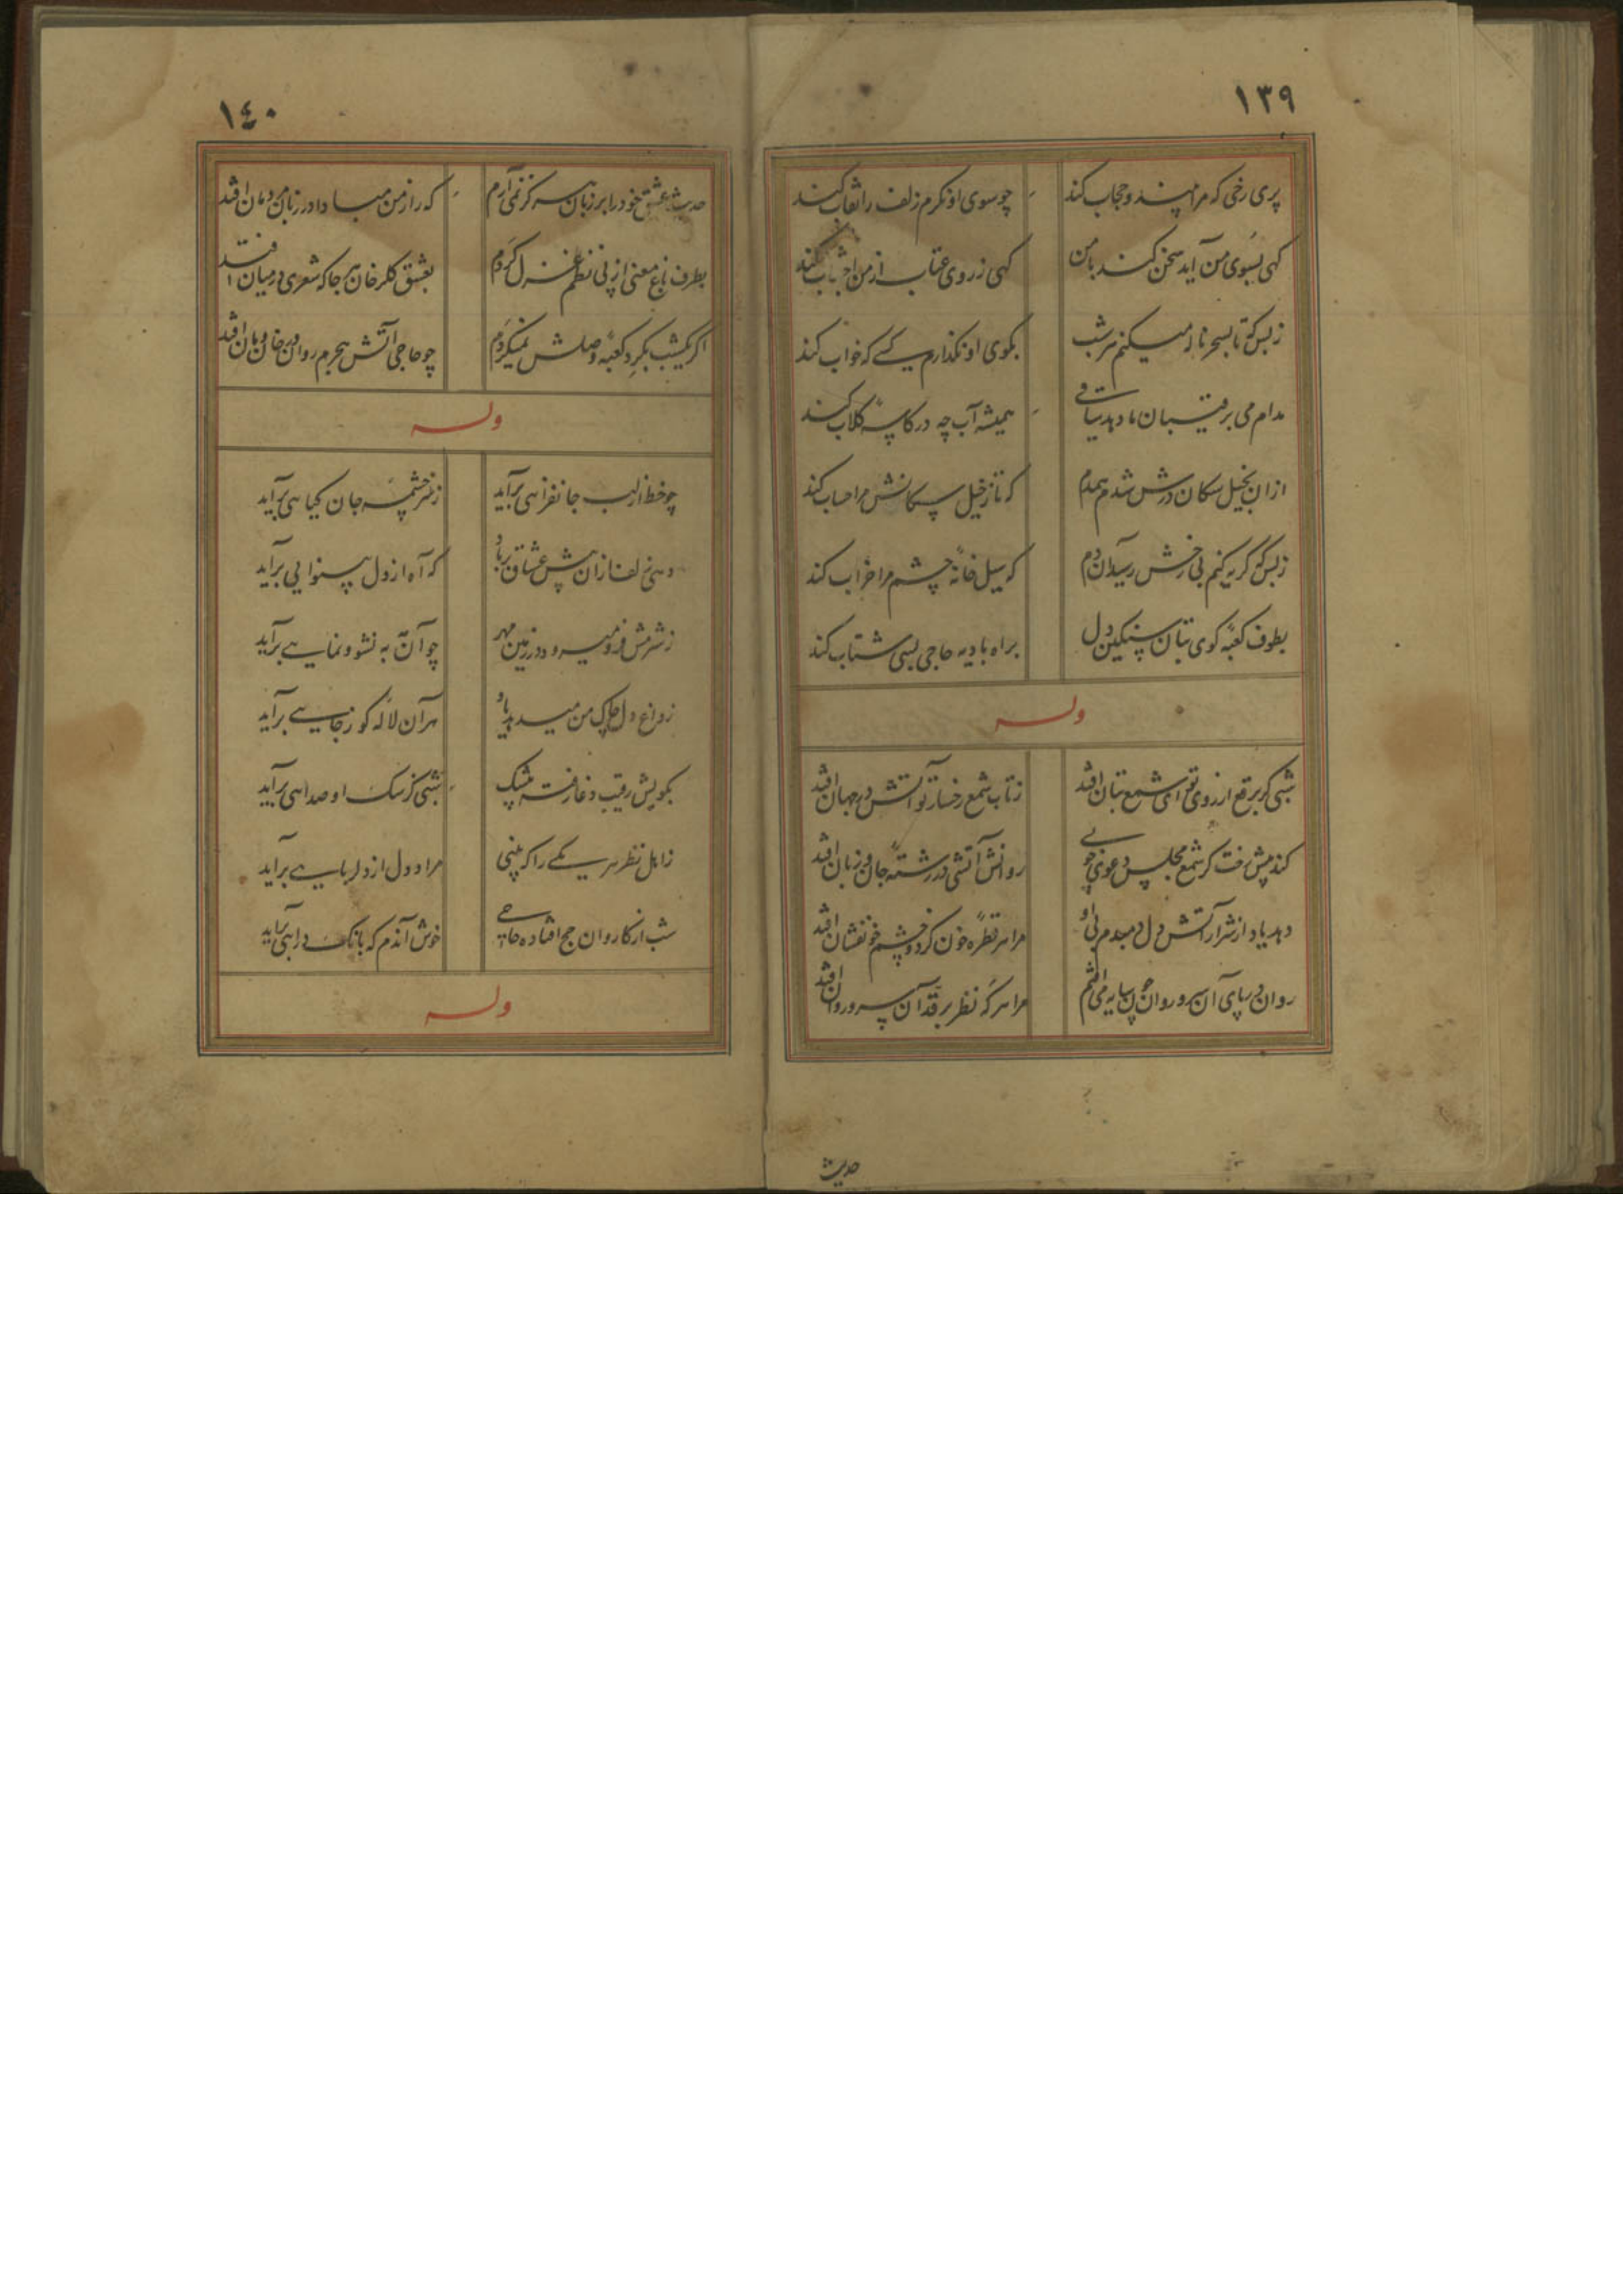 ١٣٩
پری رخی که مرا بیند و حجاب کند
چو سوی او نکرم زلف را نقاب کند
کهی بسوی من آید سخن کند با من
کهی ز روی عتاب از من اجتناب کند
ز بس که تا بسحر ناله میکنم هر شب
بکوی او نکذارم کسی که خواب کند
مدام می برقیبان ما دهد ساقی
همیشه آب چه در کاسهٔ کلاب کند
ازان بخیل سکان درش شدم همدم
که تا ز خیل سکانش مرا حساب کند
ز بس که کریه کنم بی رخش رسید آن دم
که سیل خانهٔ چشم مرا خراب کند
بطوف کعبهٔ کوی بتان سنکین دل
براه بادیه حاجی بسی شتاب کند
وله
شبی کر برقع از روی تو ای شمع بتان افتد
ز تاب شمع رخسار تو آتش در جهان افتد
کند پیش رخت کر شمع مجلس دعوی
روانش آتشی در رشتهٔ جان و زبان افتد
دهد یاد از شرار آتش دل دمبدم بی او
مرا هر قطرهٔ خون کز دو چشم خونفشان افتد
روان در پای آن سرو روان چون سایه می افتم
مرا هر که نظر بر قد آن سرو روان افتد
حدیث
١٤٠
حدیث عشق خود را بر زبان هرکز نمی آرم
که راز من مبادا در زبان مردمان افتد
بطرف باغ معنی از پی نظم غزل کردم
بعشق کلرخان هر جا که شعری در میان افتد
اکر یکشب بکرد کعبهٔ وصلش نمیکردم
چو حاجی آتش هجرم روان در خان و مان افتد
وله
چو خط از لب جانفزایی برآید
ز سرچشمهٔ جان کیاهی برآید
زلف ازان پیش عشاق بر باد
که آه از دل بینوایی برآید
ز شرمش فرو میرود در زمین مهر
چو آن به نشو و نمایی برآید
ز داغ دل چاک من میدهد یاد
هر آن لاله کو ز جایی برآید
بکویش رقیب دغا رفته بیشک
شبی کز سک او صدایی برآید
ز اهل نظر هر یکی را که بینی
مراد دل از دلربایی برآید
شب از کاروان حج افتاده حاجی
خوش آندم که بانک درایی برآید
وله